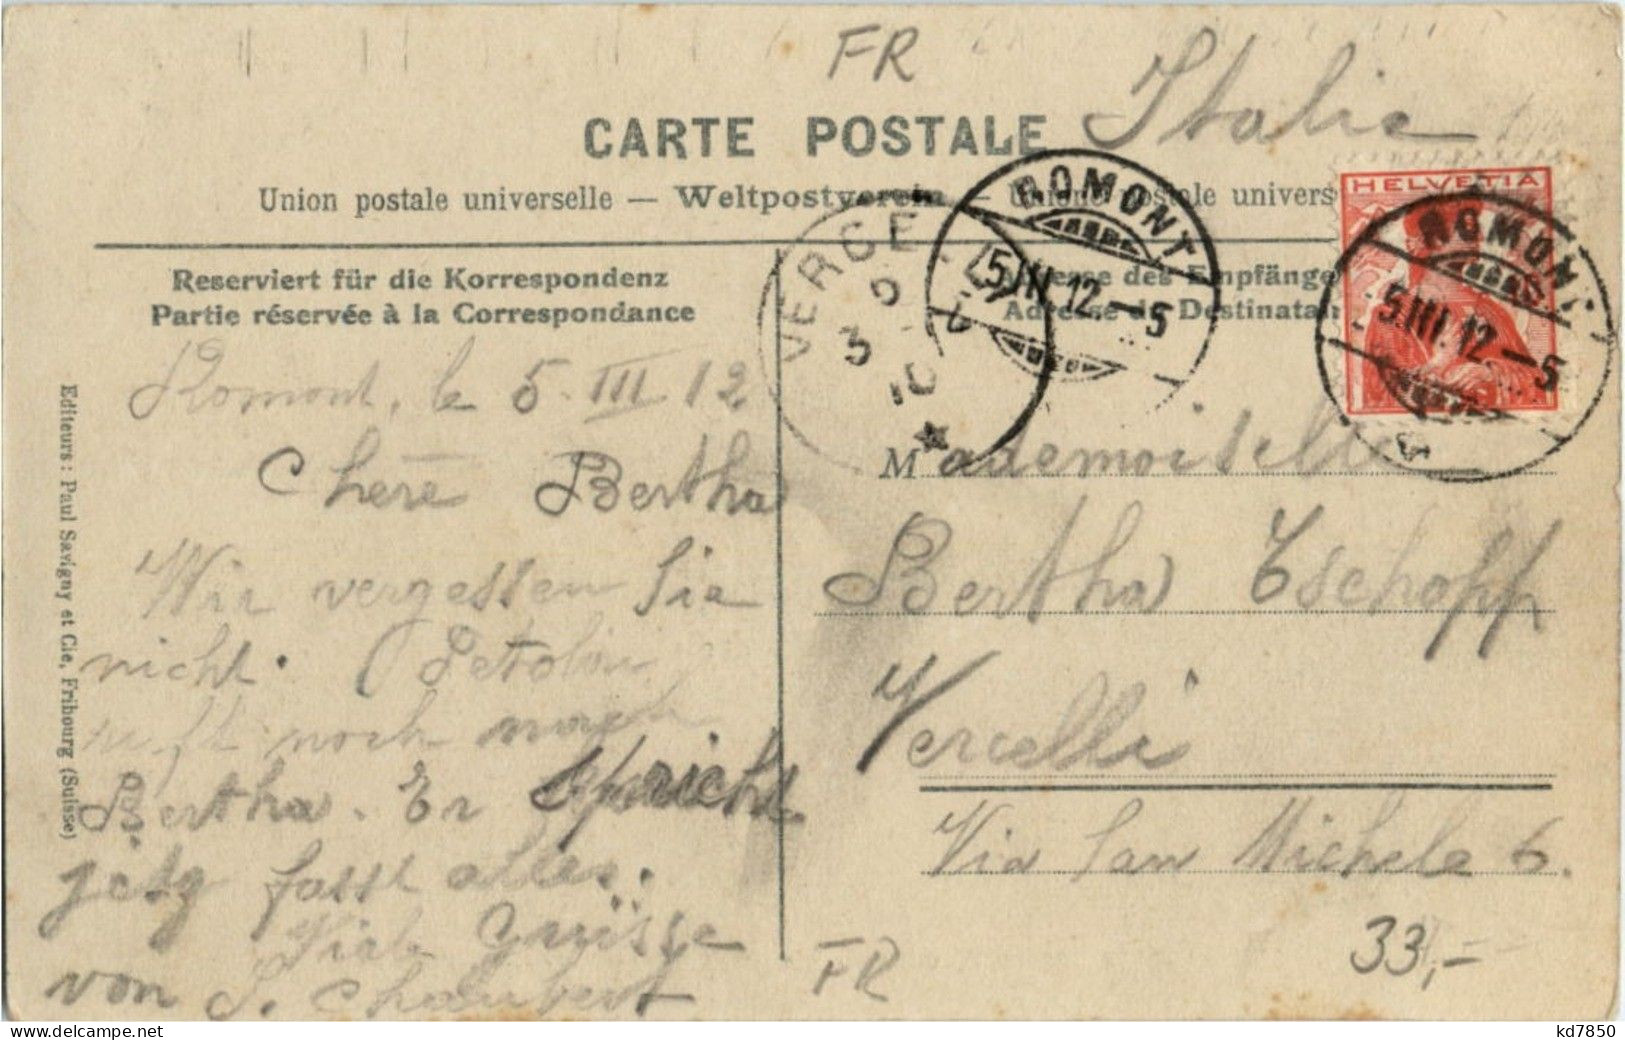 FR
Italie
CARTE POSTALE
Union postale universelle — Weltpostverein — Unione postale univers
Reserviert für die Korrespondenz
Partie réservée à la Correspondance
Adresse des Empfänge
Adresse du Destinatai
HELVETIA
ROMONT
5.III.12 – 5
ROMONT
5.III.12 – 5
VERCE
3
10
Romont, le 5. III 12
Chère Bertha
Wir vergessen Sie
nicht.
ruft noch nach
Bertha. Er spricht
jetz fasst alles.
Viele Grüsse
von S. Chaubert
Mademoiselle
Bertha Tschopp
Vercelli
Via San Michele 6.
33,-
FR
Editeurs: Paul Savigny et Cie, Fribourg (Suisse)
kd7850